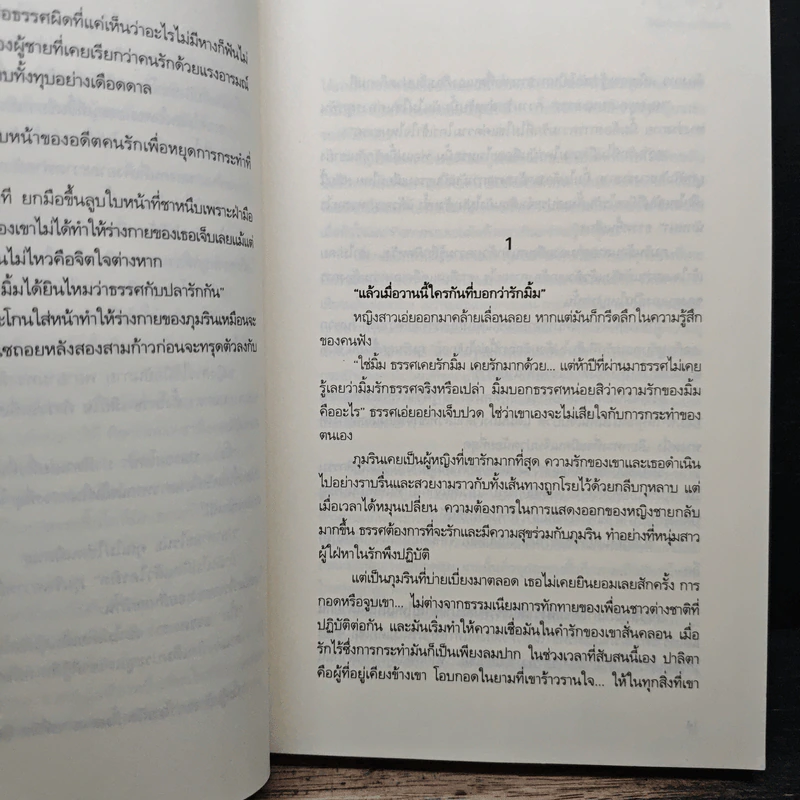 ธรรศผิดที่แค่เห็นว่าอะไรไม่มีหางก็พันไม่
ผู้ชายที่เคยเรียกว่าคนรักด้วยแรงอารมณ์
ทั้งทุบอย่างเดือดดาล
หน้าของอดีตคนรักเพื่อหยุดการกระทำที่
ที ยกมือขึ้นลูบใบหน้าที่ชาหนึบเพราะฝ่ามือ
ของเขาไม่ได้ทำให้ร่างกายของเธอเจ็บเลยแม้แต่
ไม่ไหวคือจิตใจต่างหาก
มิ้มได้ยินไหมว่าธรรศกับปลารักกัน"
ะโกนใส่หน้าทำให้ร่างกายของภุมรินเหมือนจะ
เซถอยหลังสองสามก้าวก่อนจะทรุดตัวลงกับ
1
"แล้วเมื่อวานนี้ใครกันที่บอกว่ารักมิ้ม"
หญิงสาวเอ่ยออกมาคล้ายเลื่อนลอย หากแต่มันก็กรีดลึกในความรู้สึก
ของคนฟัง
"ใช่มิ้ม ธรรศเคยรักมิ้ม เคยรักมากด้วย... แต่ห้าปีที่ผ่านมาธรรศไม่เคย
รู้เลยว่ามิ้มรักธรรศจริงหรือเปล่า มิ้มบอกธรรศหน่อยสิว่าความรักของมิ้ม
คืออะไร" ธรรศเอ่ยอย่างเจ็บปวด ใช่ว่าเขาเองจะไม่เสียใจกับการกระทำของ
ตนเอง
ภุมรินเคยเป็นผู้หญิงที่เขารักมากที่สุด ความรักของเขาและเธอดำเนิน
ไปอย่างราบรื่นและสวยงามราวกับทั้งเส้นทางถูกโรยไว้ด้วยกลีบกุหลาบ แต่
เมื่อเวลาได้หมุนเปลี่ยน ความต้องการในการแสดงออกของหญิงชายกลับ
มากขึ้น ธรรศต้องการที่จะรักและมีความสุขร่วมกับภุมริน ทำอย่างที่หนุ่มสาว
ผู้ใฝ่หาในรักพึงปฏิบัติ
แต่เป็นภุมรินที่บ่ายเบี่ยงมาตลอด เธอไม่เคยยินยอมเลยสักครั้ง การ
กอดหรือจูบเขา... ไม่ต่างจากธรรมเนียมการทักทายของเพื่อนชาวต่างชาติที่
ปฏิบัติต่อกัน และมันเริ่มทำให้ความเชื่อมันในคำรักของเขาสั่นคลอน เมื่อ
รักไร้ซึ่งการกระทำมันก็เป็นเพียงลมปาก ในช่วงเวลาที่สับสนนี้เอง ปาลิตา
คือผู้ที่อยู่เคียงข้างเขา โอบกอดในยามที่เขาร้าวรานใจ... ให้ในทุกสิ่งที่เขา